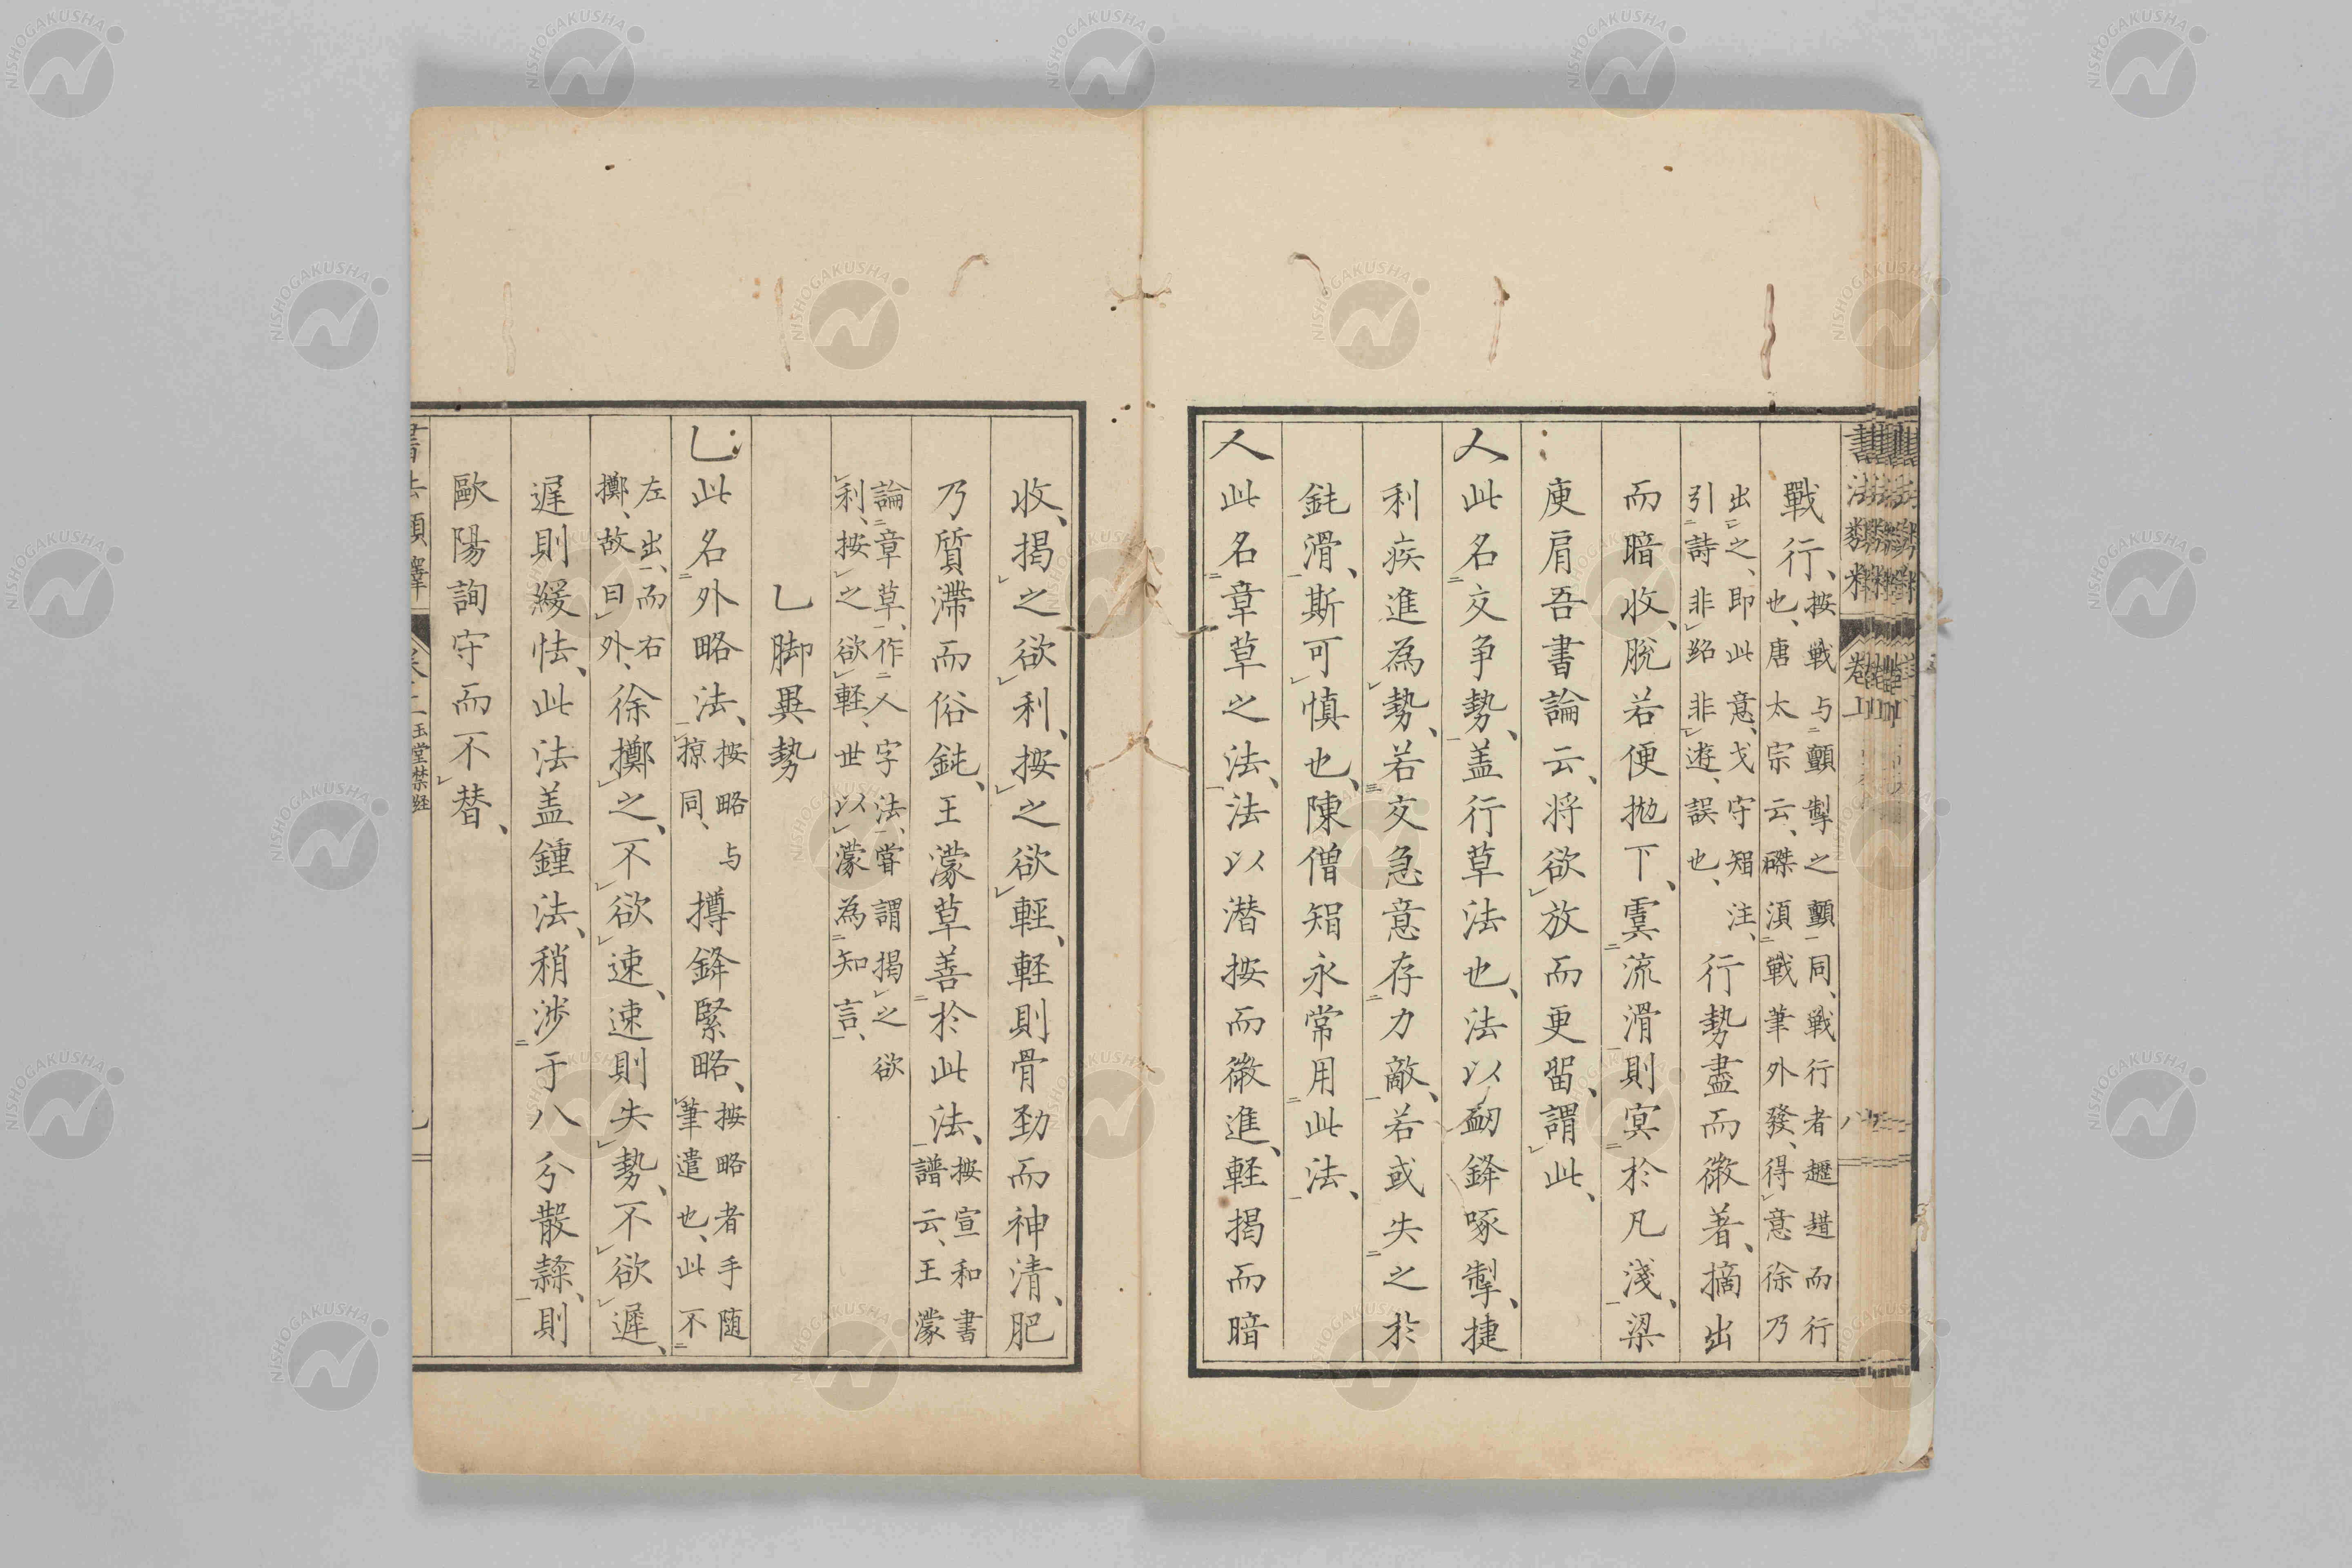 戰行、按戰与顫掣之顫同、戰行者趦趄而行
也、唐太宗云、磔湏戰筆外發、得意徐乃
出之、即此意、戈守智注、
引詩非紹非遊、誤也、行勢盡而㣲著、摘出
而暗收、脫若便拋下、虞流滑則冥於凡淺、梁
庾肩吾書論云、將欲放而更留、謂此、
人此名交爭勢、盖行草法也、法以劒鋒啄掣、捷
利疾進為勢、若交急意存力敵、若或失之於
鈍滑、斯可慎也、陳僧智永常用此法、
人此名章草之法、法以潜按而㣲進、軽揭而暗
收、揭之欲利、按之欲輕、軽則骨劲而神清、肥
乃質滯而俗鈍、王濛草善於此法、按宣和書
譜云、王濛
論章草、作人字法、嘗謂揭之欲
利、按之欲軽、世以濛為知言、
乚脚異勢
乚此名外略法、按略与
掠同、撙鋒緊略、按略者手随
筆遣也、此不
左出、而右
擲、故曰外、徐擲之、不欲速、速則失勢、不欲遲、
遲則緩怯、此法盖鍾法、稍涉于八分散隷、則
歐陽詢守而不替、
書法類釋
卷上
八
玉堂禁経